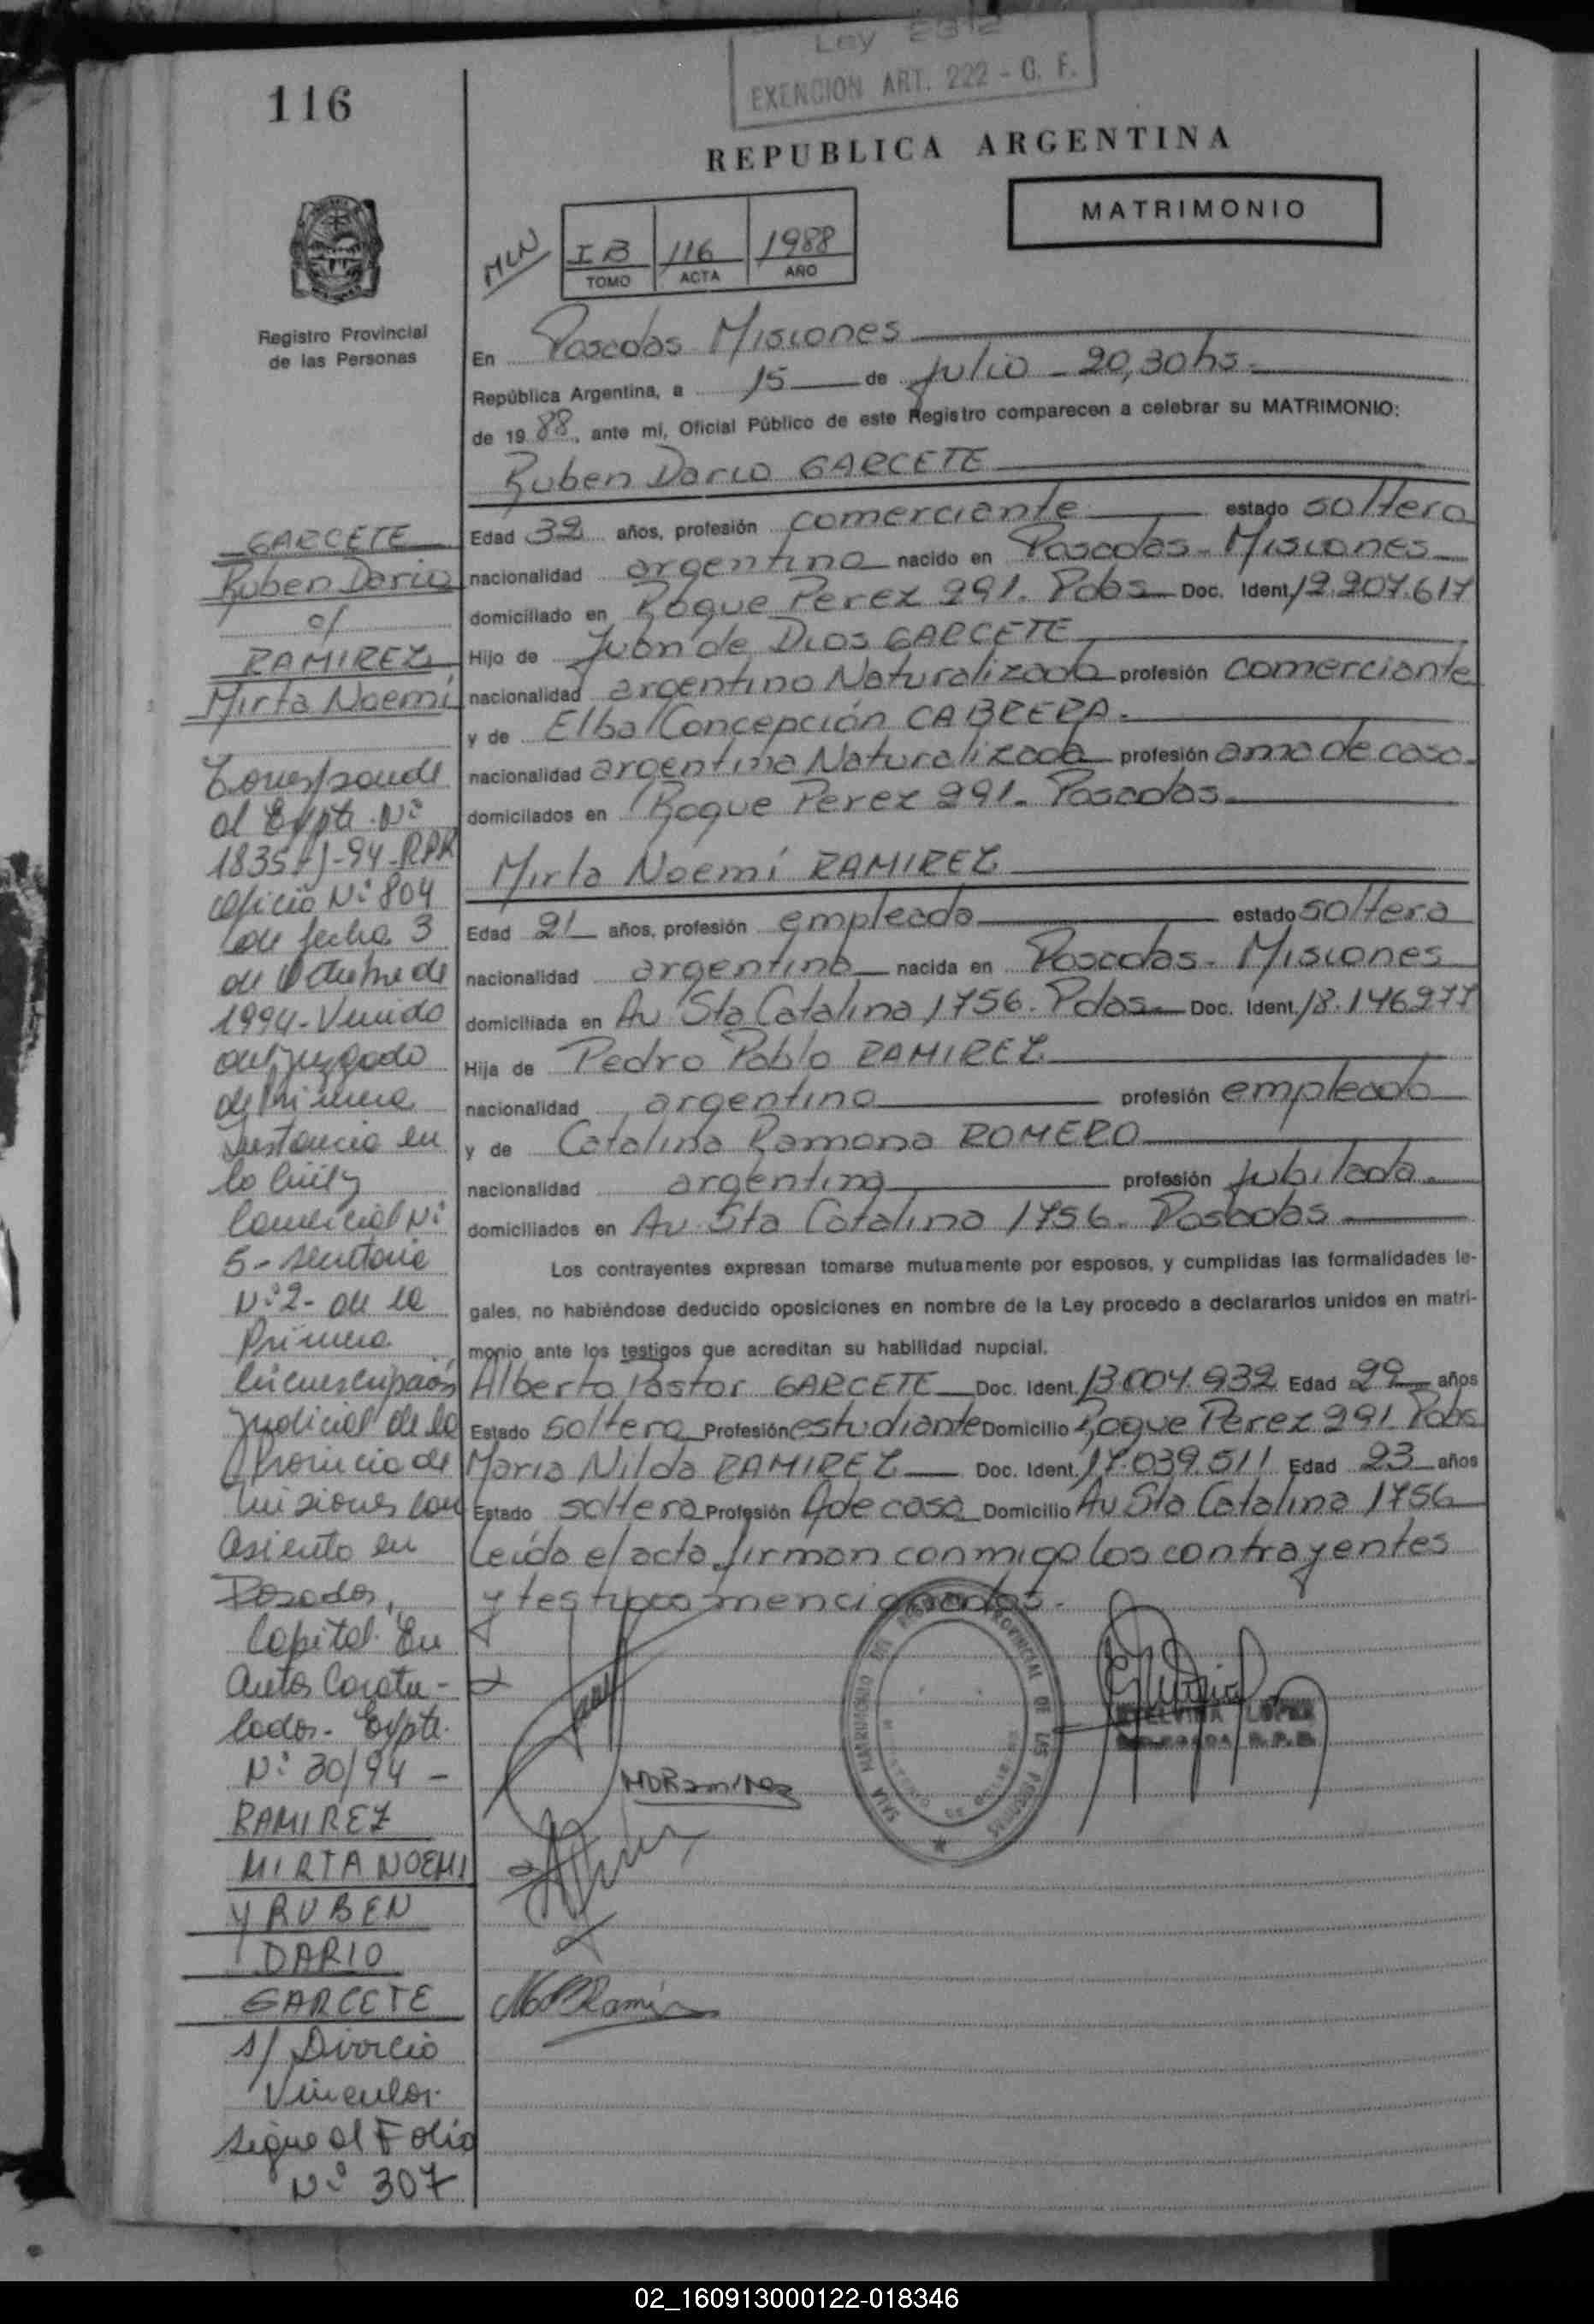 Ley 2312
EXENCION ART. 222 - C. F.
116
REPUBLICA ARGENTINA
MATRIMONIO
MLN
I B 116 1988
TOMO ACTA AÑO
Registro Provincial
de las Personas
En Posadas Misiones
República Argentina, a 15 de julio - 20,30 hs.
de 19 88, ante mi, Oficial Público de este Registro comparecen a celebrar su MATRIMONIO:
Ruben Dario GARCETE
Edad 32 años, profesión comerciante estado soltero
nacionalidad argentino nacido en Posadas - Misiones
domiciliado en Roque Perez 291. Pdas Doc. Ident. 12.207.617
Hijo de Juan de Dios GARCETE
nacionalidad argentino Naturalizado profesión comerciante
y de Elba Concepción CABRERA.
nacionalidad argentina Naturalizada profesión ama de casa.
domicilados en Roque Perez 291. Posadas.
Mirta Noemí RAMIREZ
Edad 21 años, profesión empleada estado soltera
nacionalidad argentina nacida en Posadas - Misiones
domiciliada en Av Sta Catalina 1756. Pdas Doc. Ident. 18.146.277
Hija de Pedro Pablo RAMIREZ
nacionalidad argentino profesión empleado
y de Catalina Ramona ROMERO
nacionalidad argentina profesión jubilada.
domiciliados en Av Sta Catalina 1756. Posadas
Los contrayentes expresan tomarse mutuamente por esposos, y cumplidas las formalidades le-
gales, no habiéndose deducido oposiciones en nombre de la Ley procedo a declararlos unidos en matri-
monio ante los testigos que acreditan su habilidad nupcial.
Alberto Pastor GARCETE Doc. Ident. 13.004.932 Edad 29 años
Estado soltero Profesión estudiante Domicilio Roque Perez 291 Pdas
Maria Nilda RAMIREZ Doc. Ident. 17.039.511 Edad 23 años
Estado soltera Profesión A de casa Domicilio Av Sta Catalina 1756
Leída el acta firman conmigo los contrayentes
y testigos mencionados.
MDRamirez
ETELVINA LOPEZ
DELEGADA R.P.P.
GARCETE
Ruben Dario
c/
RAMIREZ
Mirta Noemí
Corresponde
al Expte. Nº
1835-J-94-RPK
oficio Nº 804
de fecha 3
de Octubre de
1994 - Venido
del juzgado
de Primera
Instancia en
lo Civil y
Comercial Nº
5 - secretaria
Nº 2 - de la
Primera
Circunscripción
judicial de la
Provincia de
Misiones con
asiento en
Posadas,
Capital. En
Autos Caratu-
lados - Expte.
Nº 30/94 -
RAMIREZ
MIRTA NOEMI
Y RUBEN
DARIO
GARCETE
s/ Divorcio
Vincular.
sigue al Folio
Nº 307
02_160913000122-018346